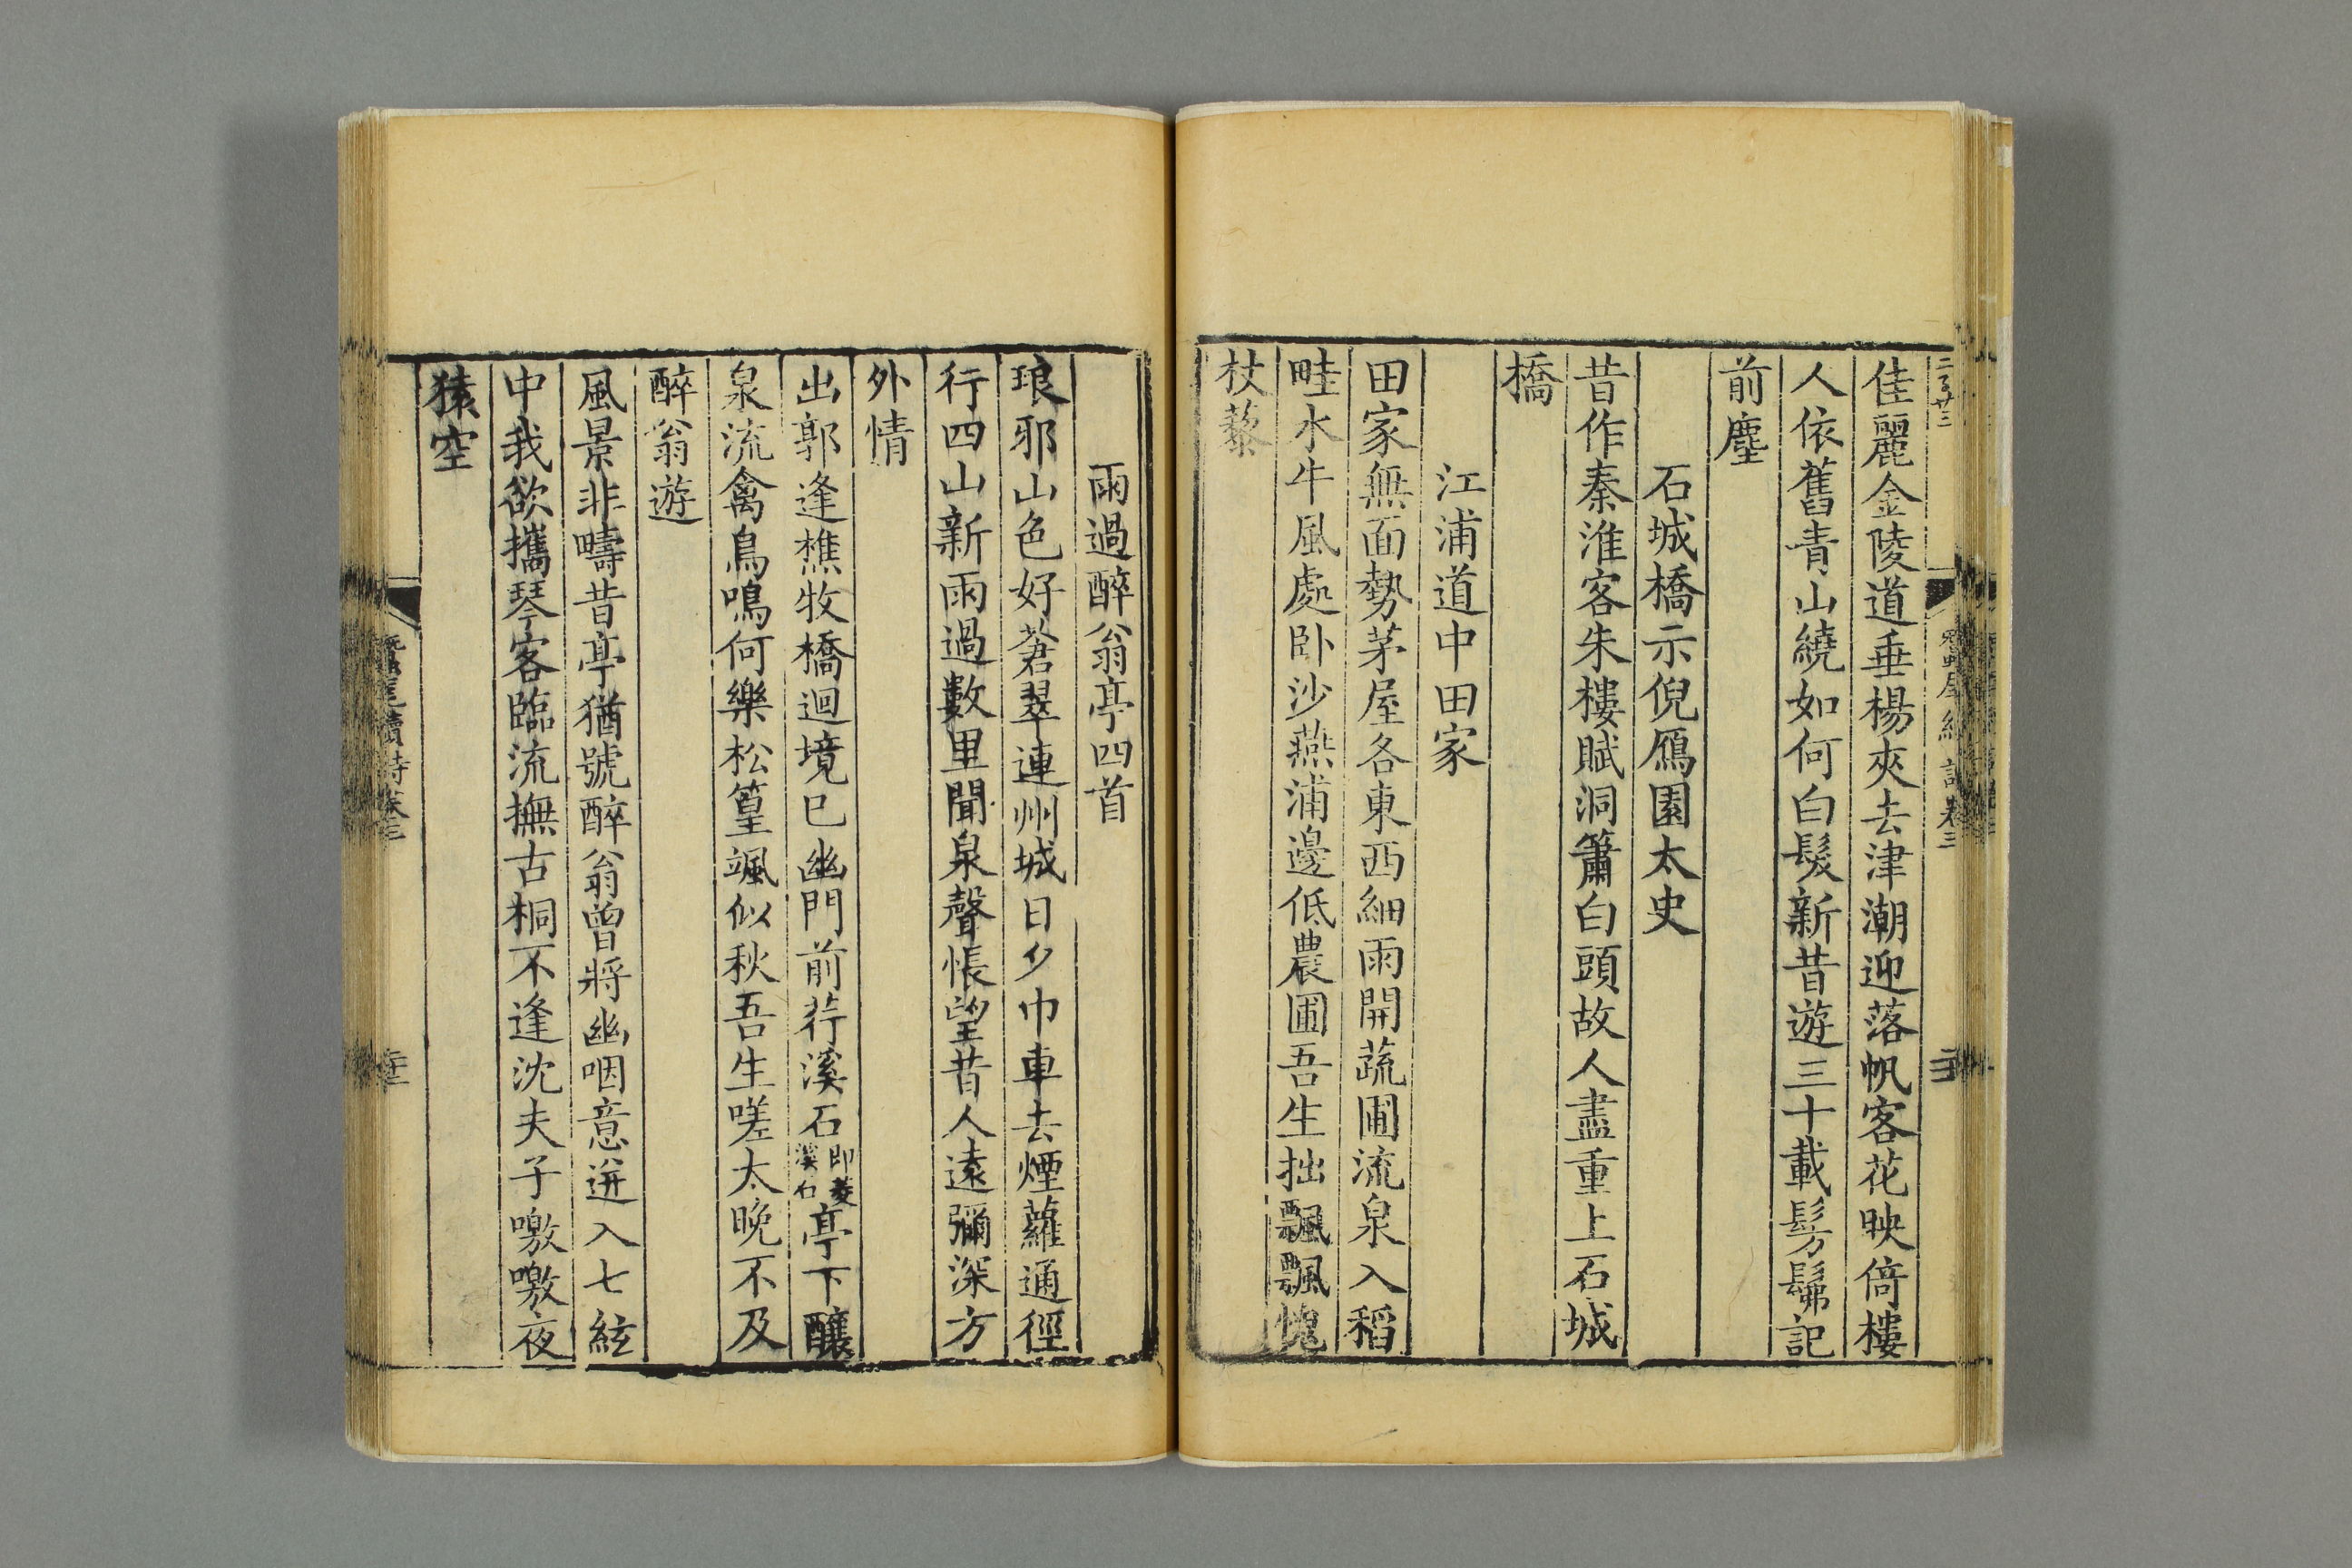 佳麗金陵道垂楊夾去津潮迎落帆客花映倚樓
人依舊青山繞如何白髮新昔遊三十載髣髴記
前塵
石城橋示倪鴈園太史
昔作秦淮客朱樓賦洞簫白頭故人盡重上石城
橋
江浦道中田家
田家無面勢茅屋各東西細雨開蔬圃流泉入稻
畦水牛風處卧沙燕浦邊低農圃吾生拙飄飄愧
杖藜
雨過醉翁亭四首
琅邪山色好蒼翠連州城日夕巾車去煙蘿通徑
行四山新雨過數里聞泉聲悵望昔人遠彌深方
外情
出郭逢樵牧橋迴境已幽門前荇溪石即菱溪石亭下釀
泉流禽鳥鳴何樂松篁颯似秋吾生嗟太晚不及
醉翁遊
風景非疇昔亭猶號醉翁曾將幽咽意迸入七絃
中我欲攜琴客臨流撫古桐不逢沈夫子噭噭夜
猿空
蠶尾續詩卷三